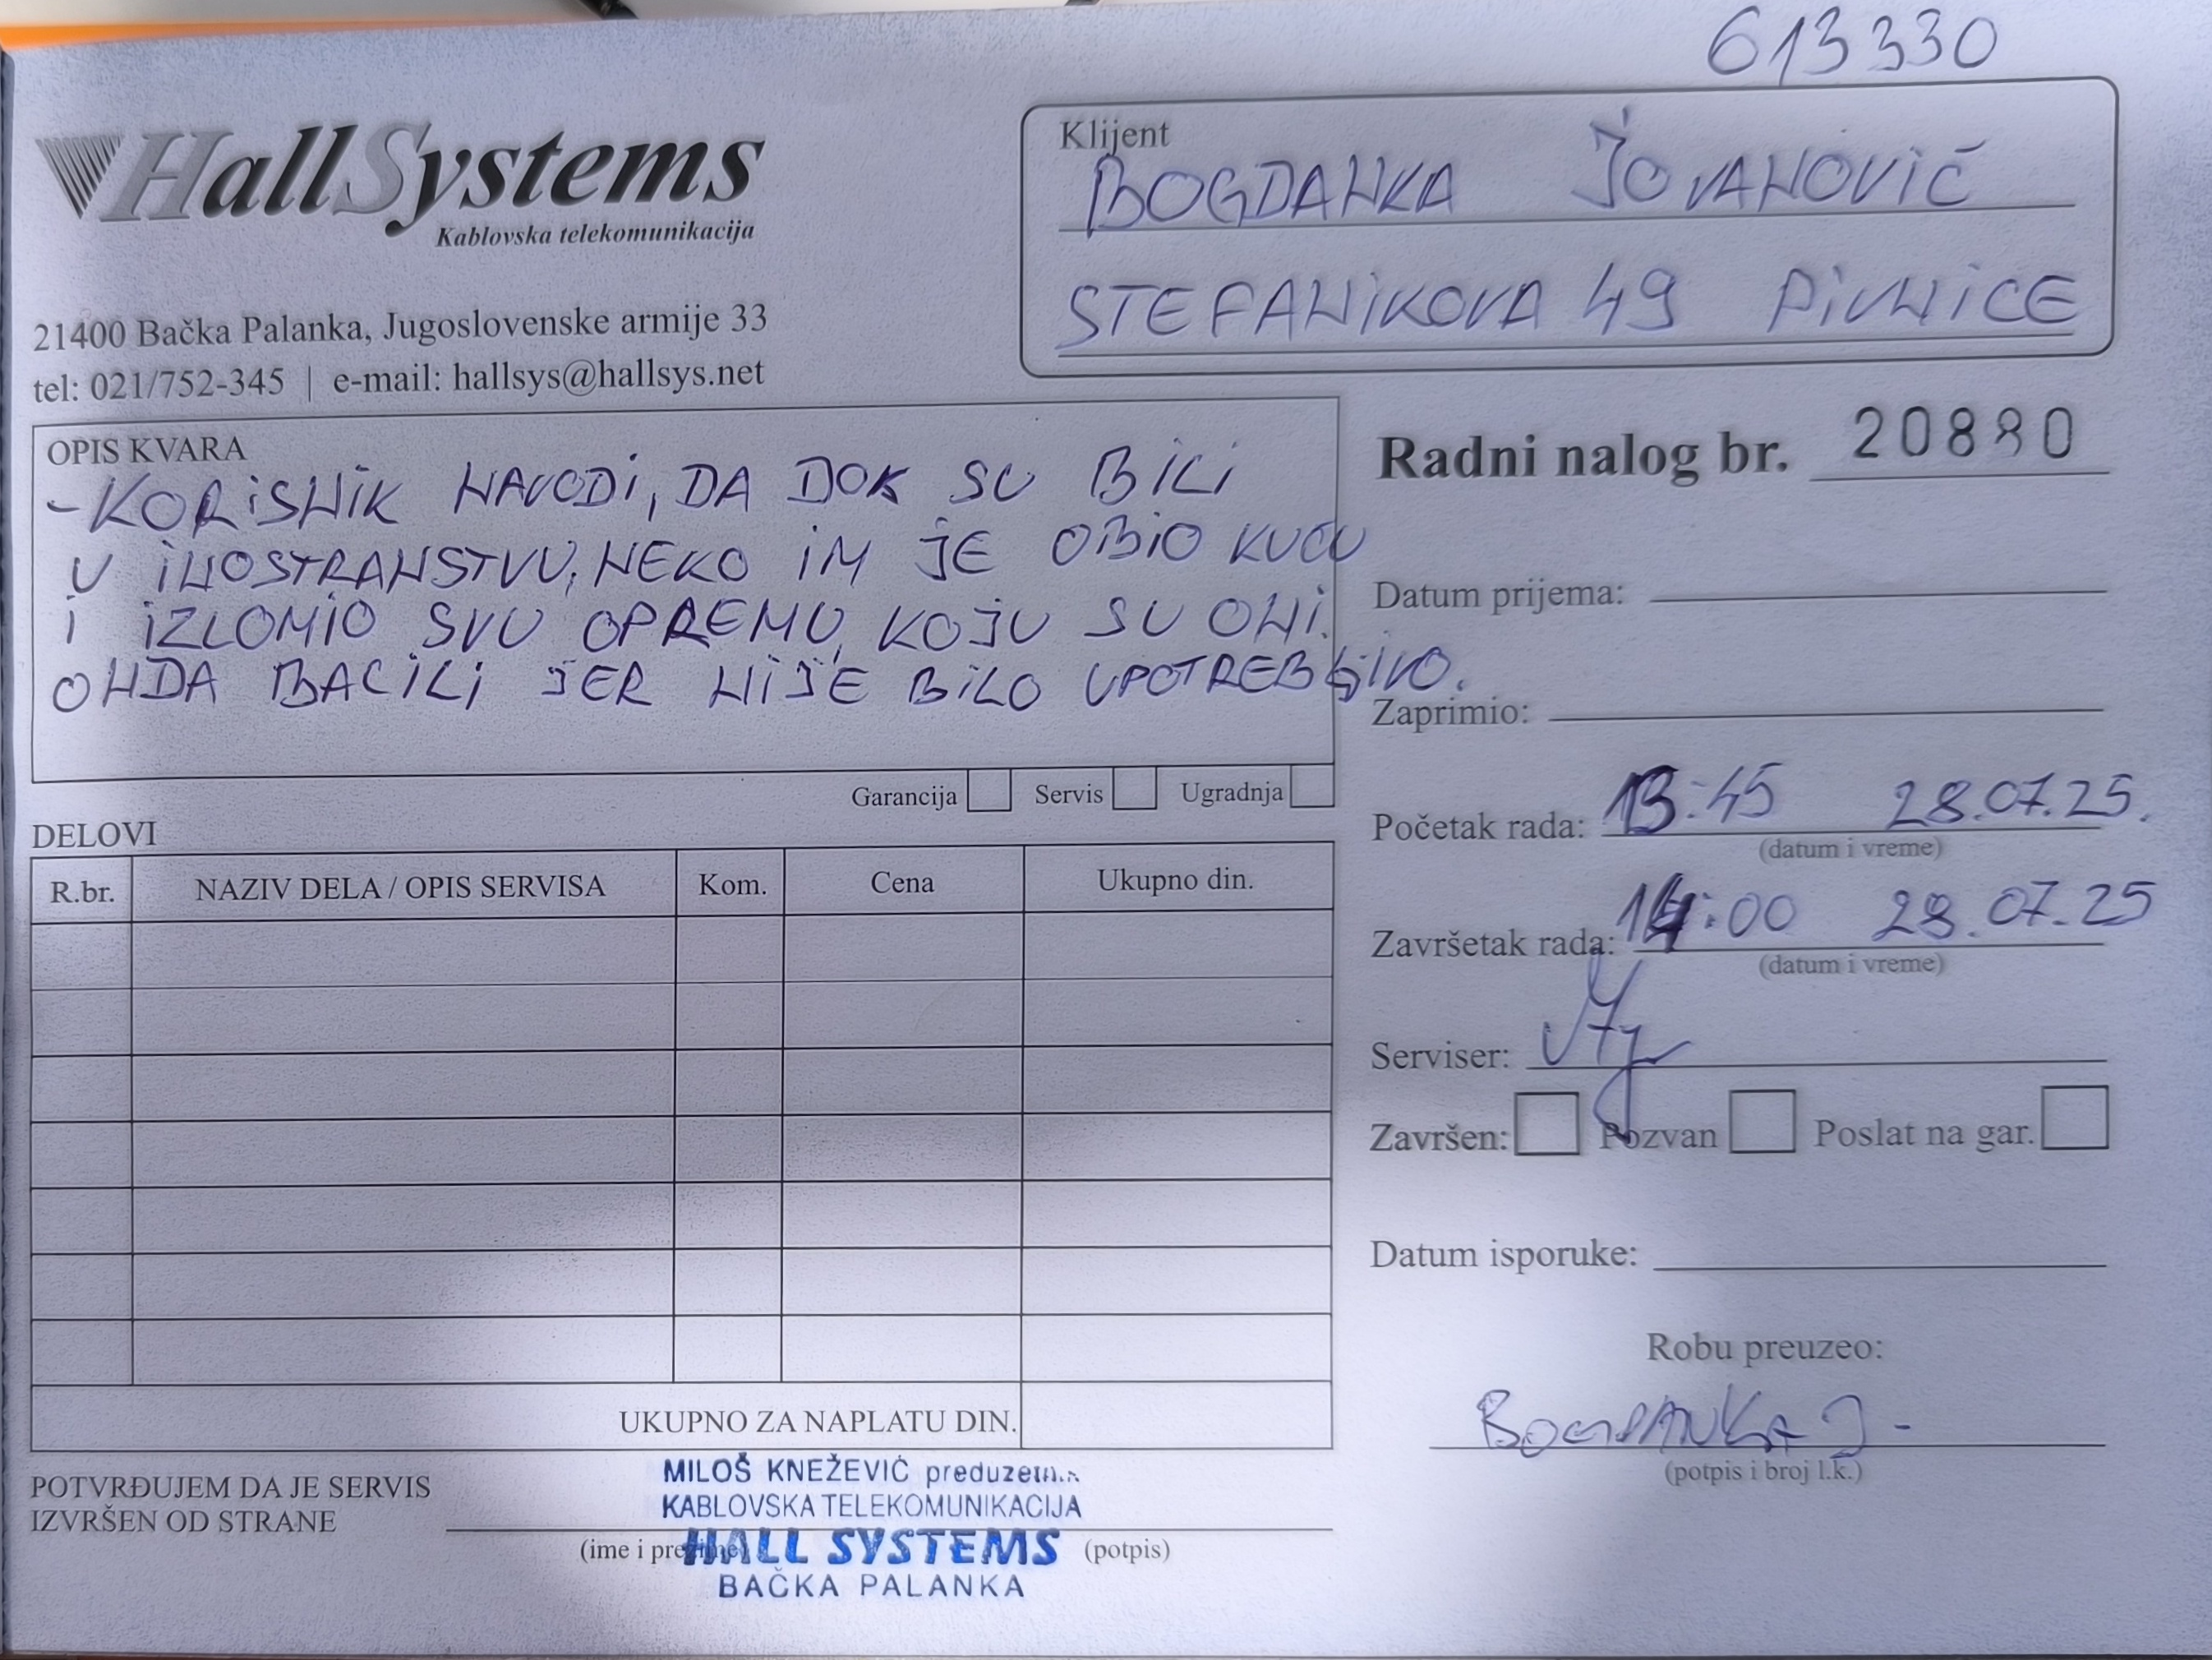 613330
HallSystems
Kablovska telekomunikacija
21400 Bačka Palanka, Jugoslovenske armije 33
tel: 021/752-345 | e-mail: hallsys@hallsys.net
Klijent
BOGDANKA JOVANOVIĆ
STEFANIKOVA 49 PIVNICE
OPIS KVARA
-KORISNIK NAVODI, DA DOK SU BILI
U INOSTRANSTVU, NEKO IM JE OBIO KUĆU
I IZLOMIO SVU OPREMU, KOJU SU ONI
ONDA BACILI JER NIJE BILO UPOTREBLJIVO.
Garancija Servis Ugradnja
Radni nalog br. 20880
Datum prijema:
Zaprimio:
Početak rada: 13:45 28.07.25.
(datum i vreme)
Završetak rada: 14:00 28.07.25
(datum i vreme)
Serviser:
Završen: Pozvan Poslat na gar.
Datum isporuke:
Robu preuzeo:
BOGDANKA J.
(potpis i broj l.k.)
DELOVI
R.br. NAZIV DELA / OPIS SERVISA Kom. Cena Ukupno din.
UKUPNO ZA NAPLATU DIN.
POTVRĐUJEM DA JE SERVIS
IZVRŠEN OD STRANE
(ime i prezime) (potpis)
MILOŠ KNEŽEVIĆ
KABLOVSKA TELEKOMUNIKACIJA
HALL SYSTEMS
BAČKA PALANKA